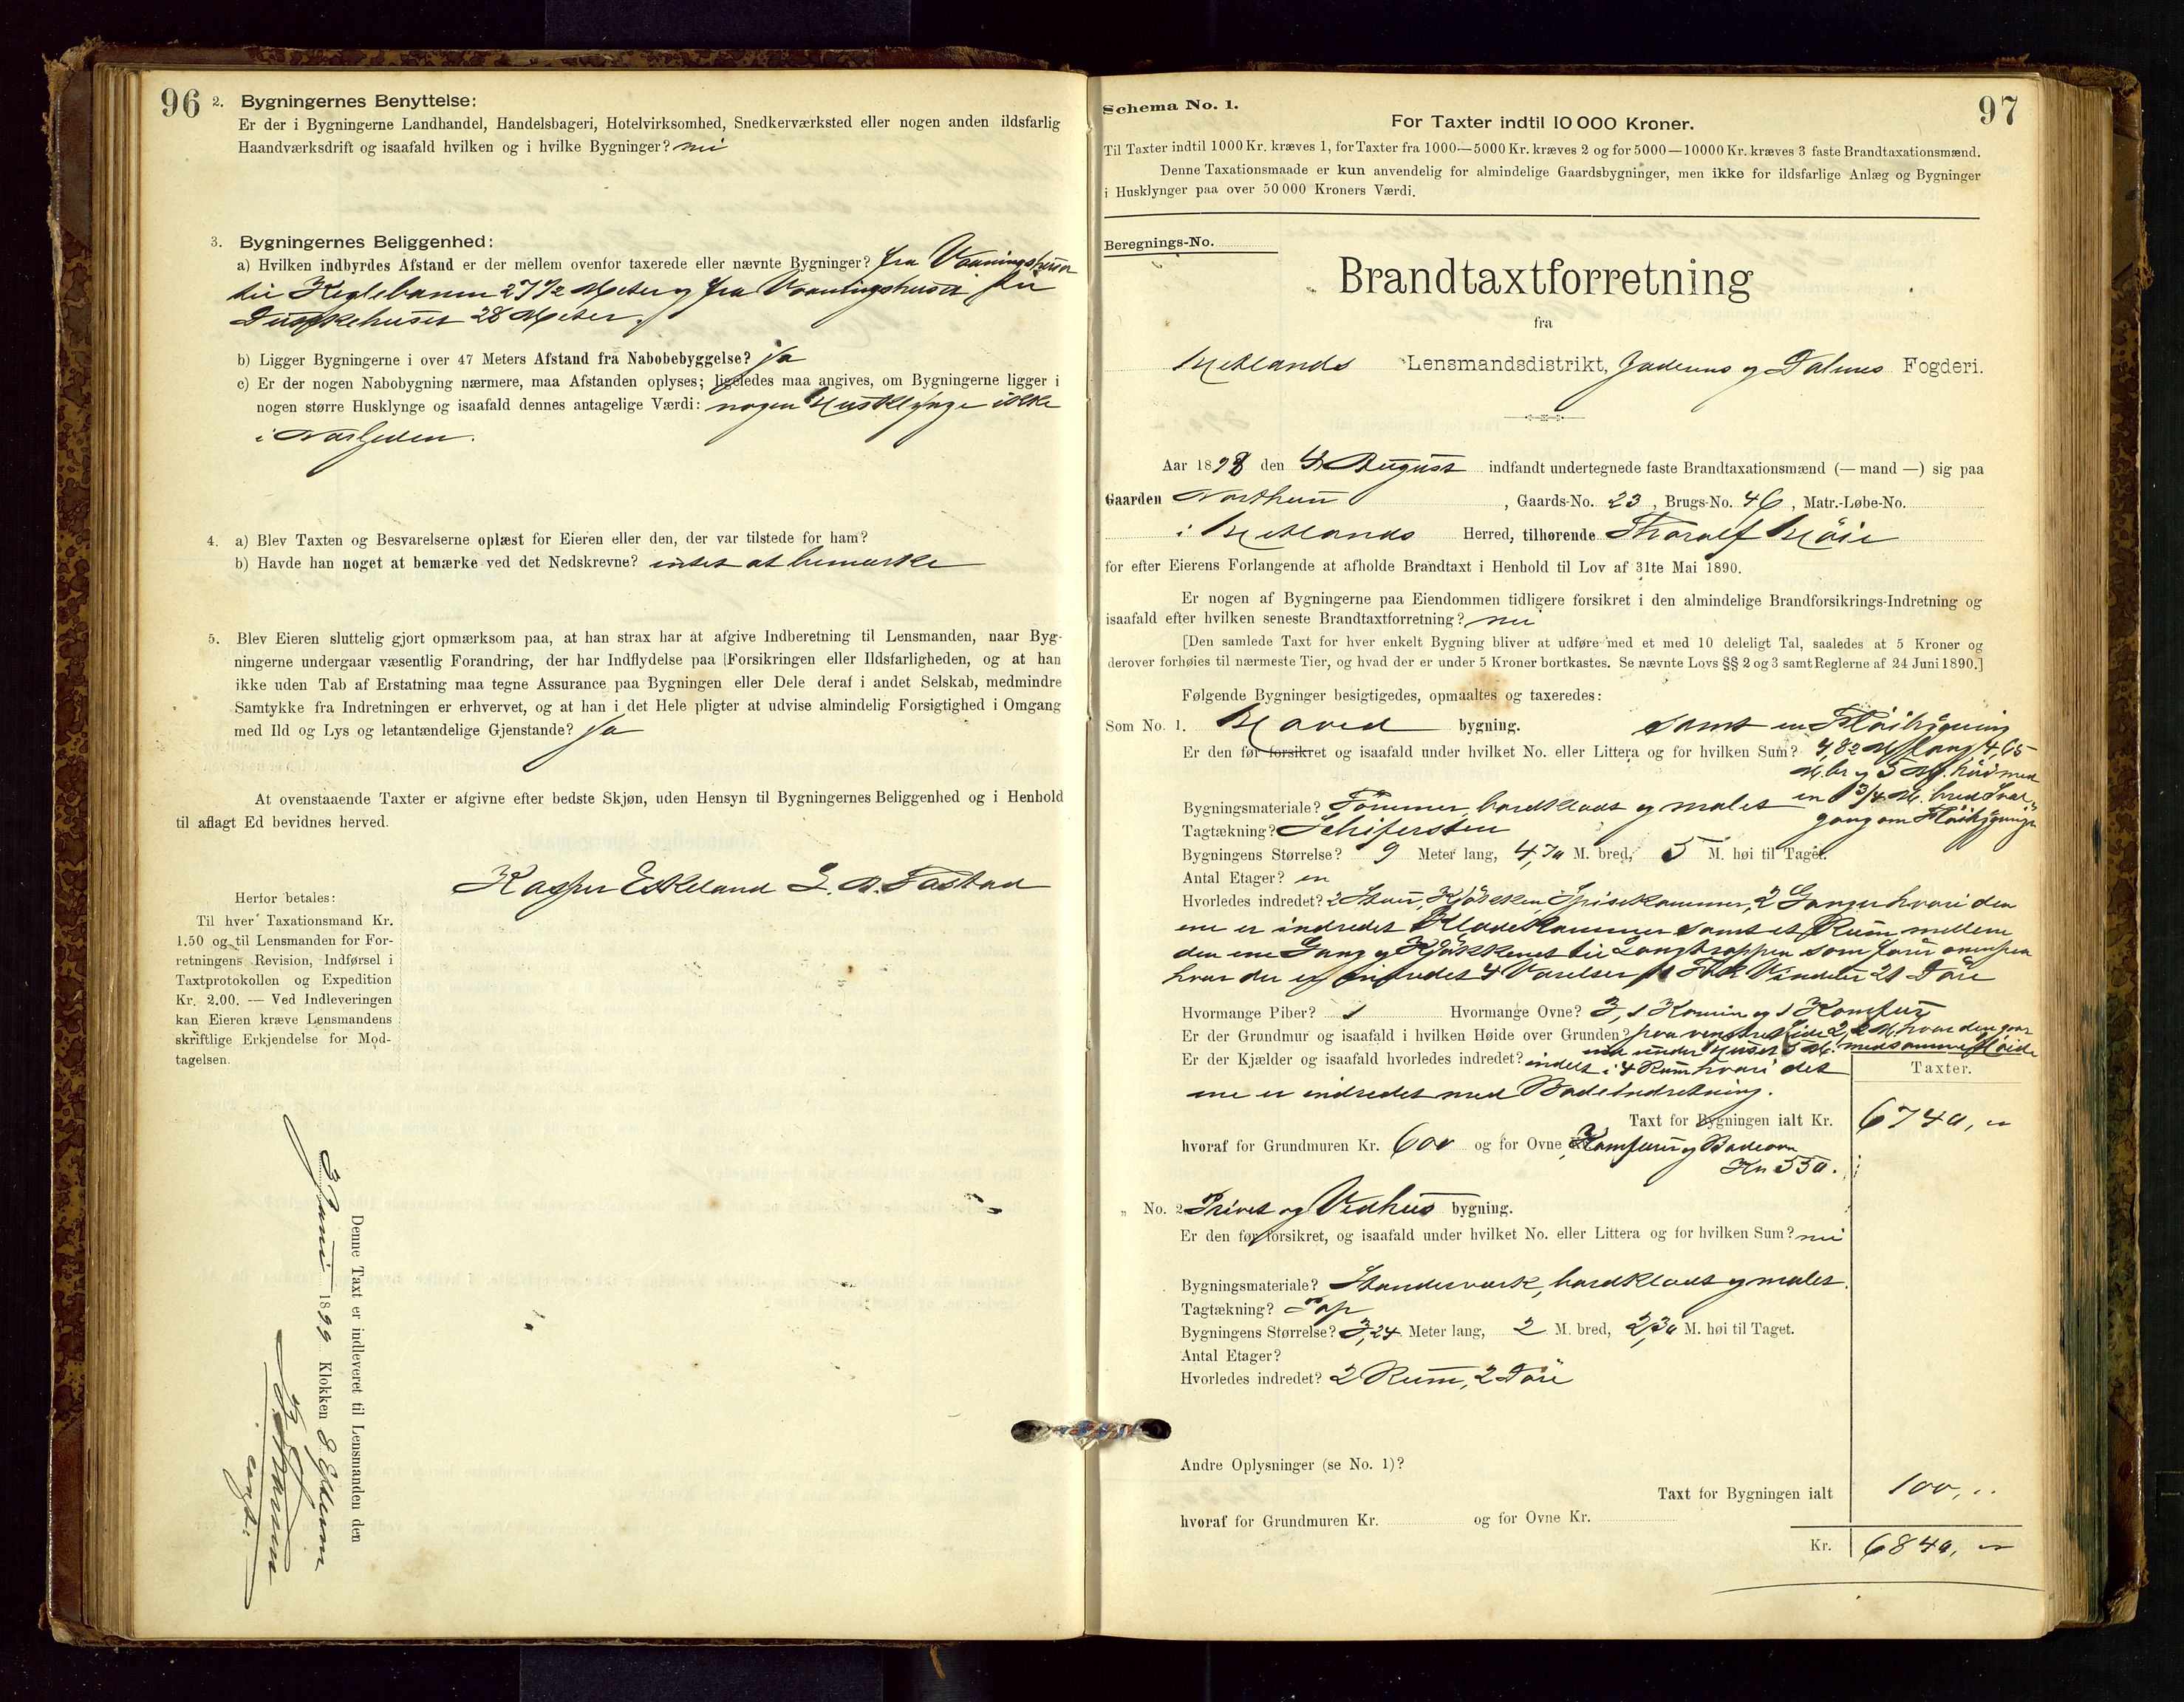 96
2. Bygningernes Benyttelse:
Er der i Bygningerne Landhandel, Handelsbageri, Hotelvirksomhed, Snedkerværksted eller nogen anden ildsfarlig
Haandværksdrift og isaafald hvilken og i hvilke Bygninger? nei
3. Bygningernes Beliggenhed:
a) Hvilken indbyrdes Afstand er der mellem ovenfor taxerede eller nævnte Bygninger? fra Vaaningshuset
til Keglebanen 27 1/2 Meter og fra Vaaningshuset til
28 Meter.
b) Ligger Bygningerne i over 47 Meters Afstand fra Nabobebyggelse? Ja
c) Er der nogen Nabobygning nærmere, maa Afstanden oplyses; ligeledes maa angives, om Bygningerne ligger i
nogen større Husklynge og isaafald dennes antagelige Værdi: nogen Husklynge ikke
i Nærheden.
4. a) Blev Taxten og Besvarelserne oplæst for Eieren eller den, der var tilstede for ham?
b) Havde han noget at bemærke ved det Nedskrevne? intet at bemærke
5. Blev Eieren sluttelig gjort opmærksom paa, at han strax har at afgive Indberetning til Lensmanden, naar Byg-
ningerne undergaar væsentlig Forandring, der har Indflydelse paa Forsikringen eller Ildsfarligheden, og at han
ikke uden Tab af Erstatning maa tegne Assurance paa Bygningen eller Dele deraf i andet Selskab, medmindre
Samtykke fra Indretningen er erhvervet, og at han i det Hele pligter at udvise almindelig Forsigtighed i Omgang
med Ild og Lys og letantændelige Gjenstande? Ja
At ovenstaaende Taxter er afgivne efter bedste Skjøn, uden Hensyn til Bygningernes Beliggenhed og i Henhold
til aflagt Ed bevidnes herved.
Kasper Eskeland L. A. Tastad
Herfor betales:
Til hver Taxationsmand Kr.
1.50 og til Lensmanden for For-
retningens Revision, Indførsel i
Taxtprotokollen og Expedition
Kr. 2.00. — Ved Indleveringen
kan Eieren kræve Lensmandens
skriftlige Erkjendelse for Mod-
tagelsen.
Denne Taxt er indleveret til Lensmanden den
3 Juni 1899 Klokken 8 Efterm
97
Schema No. 1.
For Taxter indtil 10 000 Kroner.
Til Taxter indtil 1000 Kr. kræves 1, for Taxter fra 1000—5000 Kr. kræves 2 og for 5000—10000 Kr. kræves 3 faste Brandtaxationsmænd.
Denne Taxationsmaade er kun anvendelig for almindelige Gaardsbygninger, men ikke for ildsfarlige Anlæg og Bygninger
i Husklynger paa over 50 000 Kroners Værdi.
Beregnings-No.
Brandtaxtforretning
fra
Hetlands Lensmandsdistrikt, Jæderens og Dalernes Fogderi.
Aar 1898 den 4 August indfandt undertegnede faste Brandtaxationsmænd (— mand —) sig paa
Gaarden , Gaards-No. 23, Brugs-No. 46, Matr.-Løbe-No.
i Hetlands Herred, tilhørende Thoralf Høie
for efter Eierens Forlangende at afholde Brandtaxt i Henhold til Lov af 31te Mai 1890.
Er nogen af Bygningerne paa Eiendommen tidligere forsikret i den almindelige Brandforsikrings-Indretning og
isaafald efter hvilken seneste Brandtaxtforretning? nei
[Den samlede Taxt for hver enkelt Bygning bliver at udføre med et med 10 deleligt Tal, saaledes at 5 Kroner og
derover forhøies til nærmeste Tier, og hvad der er under 5 Kroner bortkastes. Se nævnte Lovs §§ 2 og 3 samt Reglerne af 24 Juni 1890.]
Følgende Bygninger besigtigedes, opmaaltes og taxeredes:
Som No. 1. Hoved bygning. samt en Fløibygning
Er den før forsikret og isaafald under hvilket No. eller Littera og for hvilken Sum? 4,82 M lang 4,65
M. br og 5 M. høi med
Bygningsmateriale? Tømmer, bordklædt og malet en 1 3/4 M. bred Sval
gang om Fløibygningen
Tagtækning? Skifersten
Bygningens Størrelse? 9 Meter lang, 4,70 M. bred, 5 M. høi til Taget.
Antal Etager? en
Hvorledes indredet? 2 Stuer, Kjøkken, Spisekammer, 2 Ganger hvori den
ene er indredet Klædekammer samt et Rum mellem
den ene Gang og Kjøkkenet til Langtrappen som fører ovenpaa
hvor der er indredet 4 Værelser Vinduer 21 Døre
Hvormange Piber? 1 Hvormange Ovne? 3, 1 Kamin og 1 Komfur
Er der Grundmur og isaafald i hvilken Høide over Grunden? paa venstre Side 2,2 M. hvor den gaar
ind under Huset 5 M. med samme Høide
Er der Kjælder og isaafald hvorledes indredet? indelt i 4 Rum hvori det
ene er indredet med Badeindretning.
Taxter.
Taxt for Bygningen ialt Kr. 6740,
hvoraf for Grundmuren Kr. 600 og for Ovne Komfur og Badeovn
Kr 550.
" No. 2 Privet og Vedhus bygning.
Er den før forsikret, og isaafald under hvilket No. eller Littera og for hvilken Sum? nei
Bygningsmateriale? Standerværk, bordklædt og malet.
Tagtækning? Pap
Bygningens Størrelse? 3,24 Meter lang, 2 M. bred, 2,30 M. høi til Taget.
Antal Etager?
Hvorledes indredet? 2 Rum, 2 Døre
Andre Oplysninger (se No. 1)?
Taxt for Bygningen ialt 100,
hvoraf for Grundmuren Kr. og for Ovne Kr.
Kr. 6840,